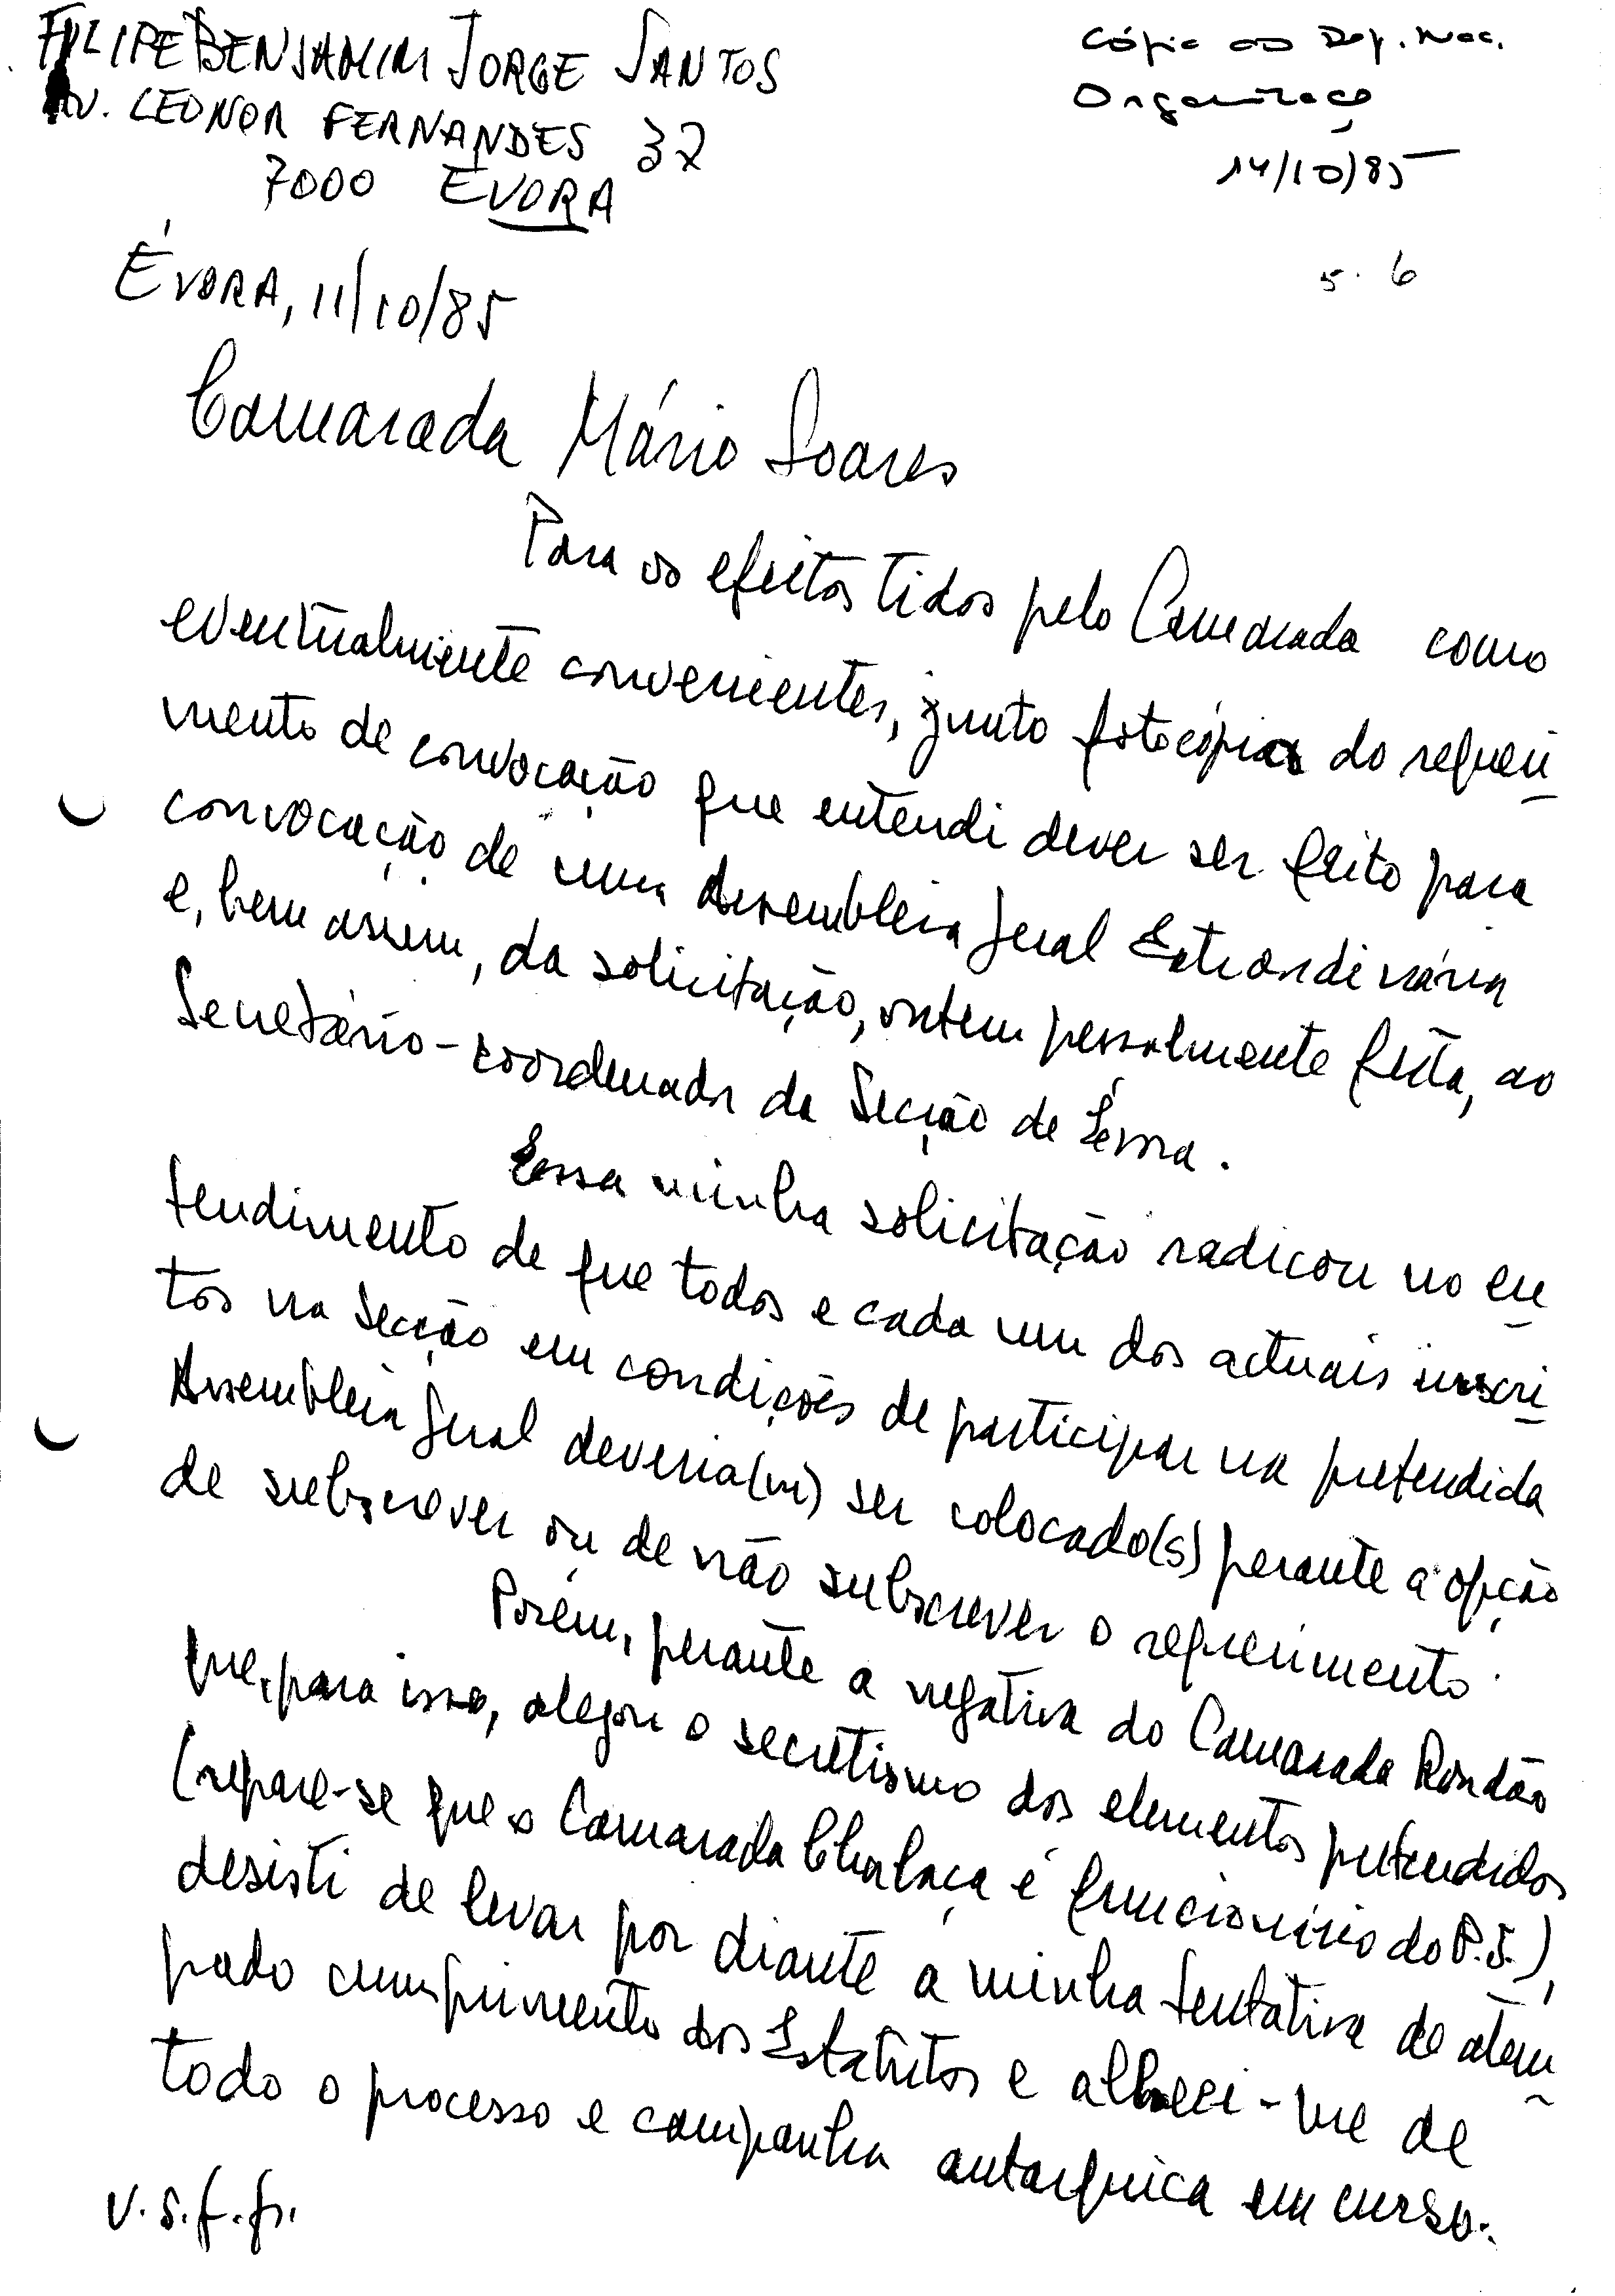 FILIPE BENJAMIM JORGE SANTOS
AV. LEONOR FERNANDES 37
7000 ÉVORA
Cópia ao Dep. Nac.
Organização
14/10/85
5.6
ÉVORA, 11/10/85
Camarada Mário Soares
Para os efeitos tidos pelo Camarada como
eventualmente convenientes, junto fotocópias do requeri
mento de convocação que entendi dever ser feito para
convocação de uma Assembleia Geral Extraordinária
e, bem assim, da solicitação, ontem pessoalmente feita, ao
Secretário-coordenador da Secção de Évora.
Essa minha solicitação radicou no en
tendimento de que todos e cada um dos actuais inscri
tos na Secção em condições de participar na pretendida
Assembleia Geral deveria(m) ser colocado(s) perante a opção
de subscrever ou de não subscrever o requerimento.
Porém, perante a negativa do Camarada Rondão
que, para isso, alegou o secretismo dos elementos pretendidos
(repare-se que o Camarada Chalaça é funcionário do P.S.),
desisti de levar por diante a minha tentativa de atem
pado cumprimento dos Estatutos e alheei-me de
todo o processo e campanha autarquica em curso.
V.S.f.f.